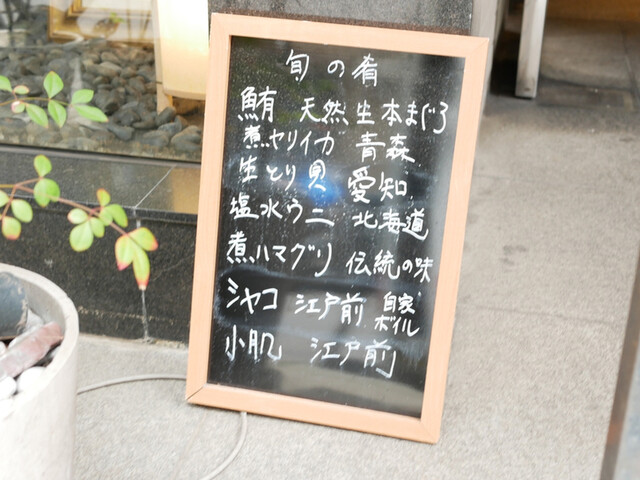 旬の肴
鮪 天然生本まぐろ
煮ヤリイカ 青森
生とり貝 愛知
塩水ウニ 北海道
煮ハマグリ 伝統の味
シャコ 江戸前 自家ボイル
小肌 江戸前